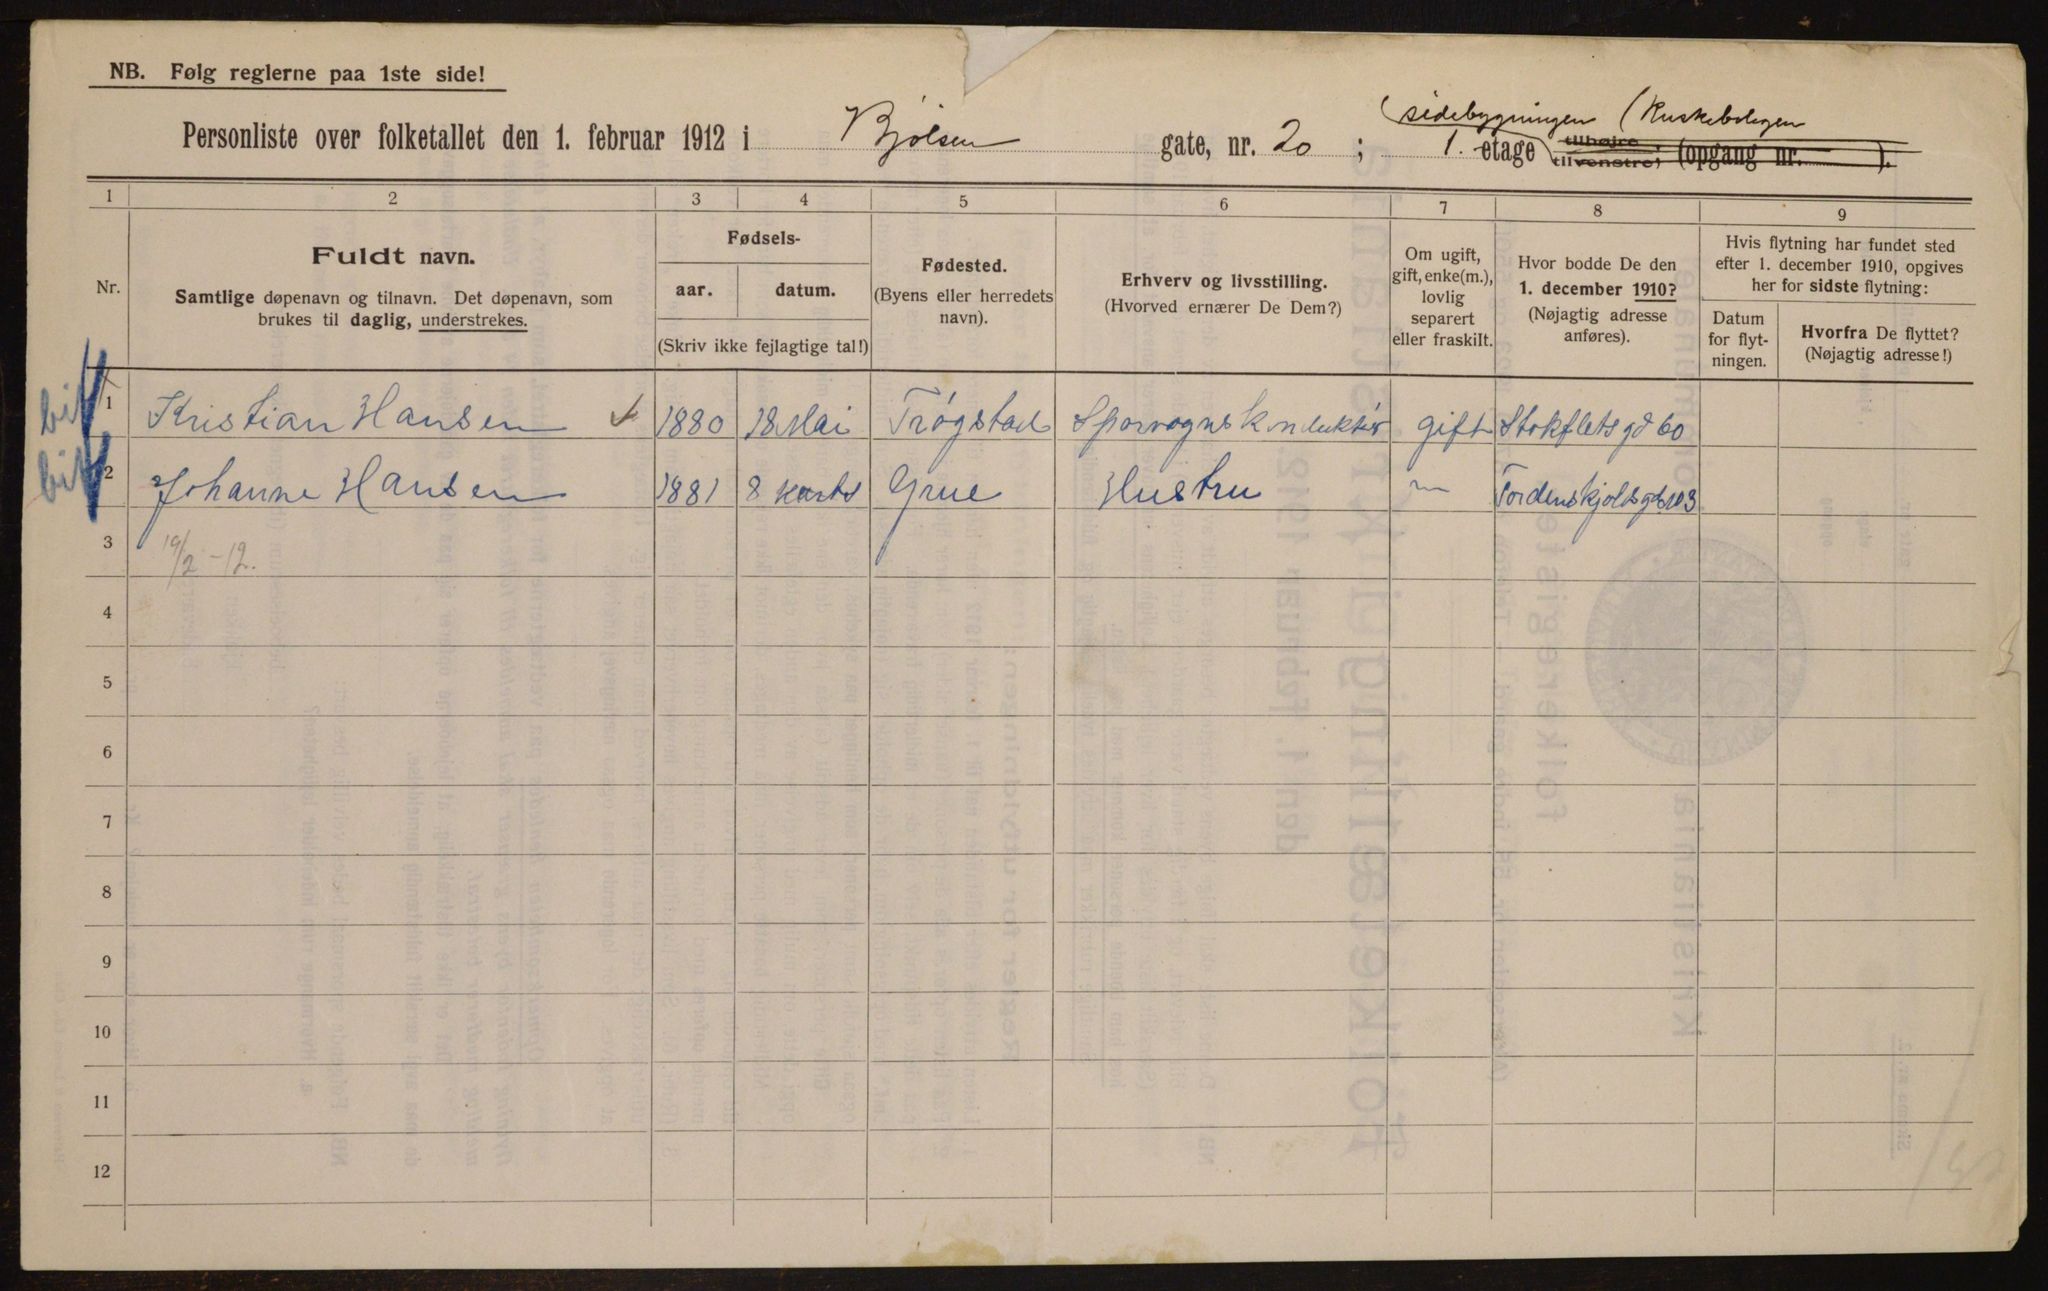 NB. Følg reglerne paa 1ste side!
(sidebygningen (Kuskeboligen
Personliste over folketallet den 1. februar 1912 i Bjølsen gate, nr. 20 ; 1. etage tilhøire, tilvenstre, (opgang nr. ).
1 2 3 4 5 6 7 8 9
Nr.
Fuldt navn.
Samtlige døpenavn og tilnavn. Det døpenavn, som
brukes til daglig, understrekes.
Fødsels-
aar. datum.
(Skriv ikke fejlagtige tal!)
Fødested.
(Byens eller herredets
navn).
Erhverv og livsstilling.
(Hvorved ernærer De Dem?)
Om ugift,
gift, enke(m.),
lovlig
separert
eller fraskilt.
Hvor bodde De den
1. december 1910?
(Nøjagtig adresse
anføres).
Hvis flytning har fundet sted
efter 1. december 1910, opgives
her for sidste flytning:
Datum
for flyt-
ningen.
Hvorfra De flyttet?
(Nøjagtig adresse!)
1 Kristian Hansen 1880 18 Mai Trøgstad Sporvognsknduktør gift Stokfletsgd 60
2 Johanne Hansen 1881 8 Grue Hustru — Tordenskjoldsgd 103
3 19/2 - 12.
4
5
6
7
8
9
10
11
12